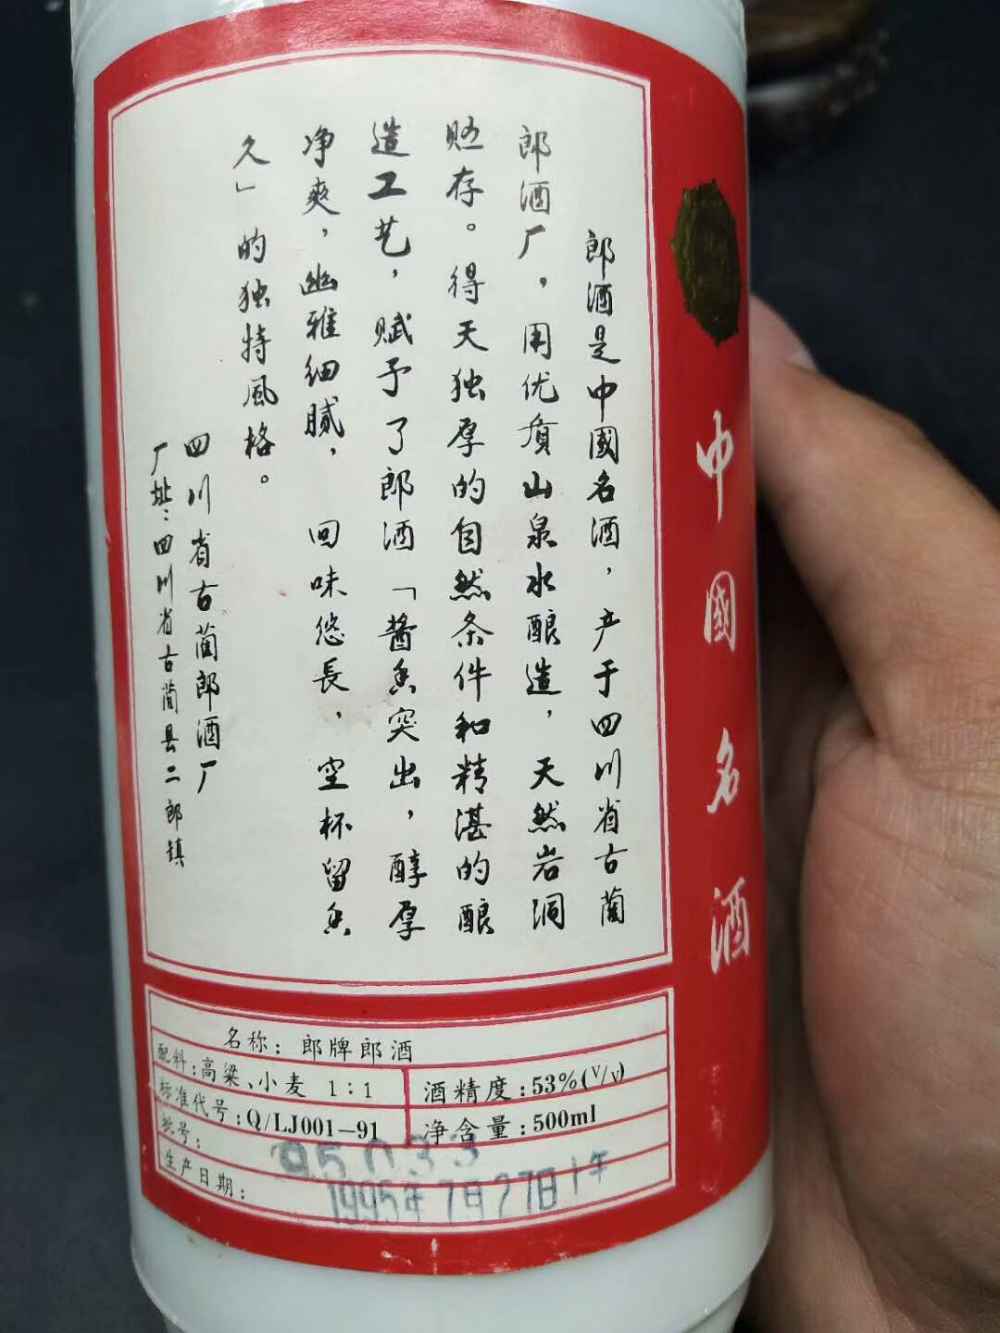 郎酒是中國名酒，产于四川省古蔺
郎酒厂，用优质山泉水酿造，天然岩洞
贮存。得天独厚的自然条件和精湛的酿
造工艺，赋予了郎酒「酱香突出，醇厚
净爽，幽雅细腻，回味悠長，空杯留香
久」的独特風格。
四川省古蔺郎酒厂
厂址：四川省古蔺县二郎镇
中國名酒
名称：郎牌郎酒
配料：高粱、小麦 1:1
酒精度：53%(V/V)
标准代号：Q/LJ001—91
净含量：500ml
批号：95033
生产日期：1995年7月27日1年